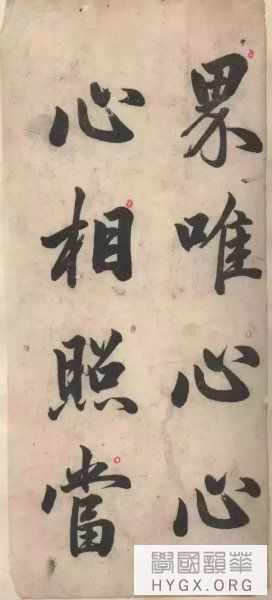 界唯心心
心相照當
華韻國學
HYGX.ORG